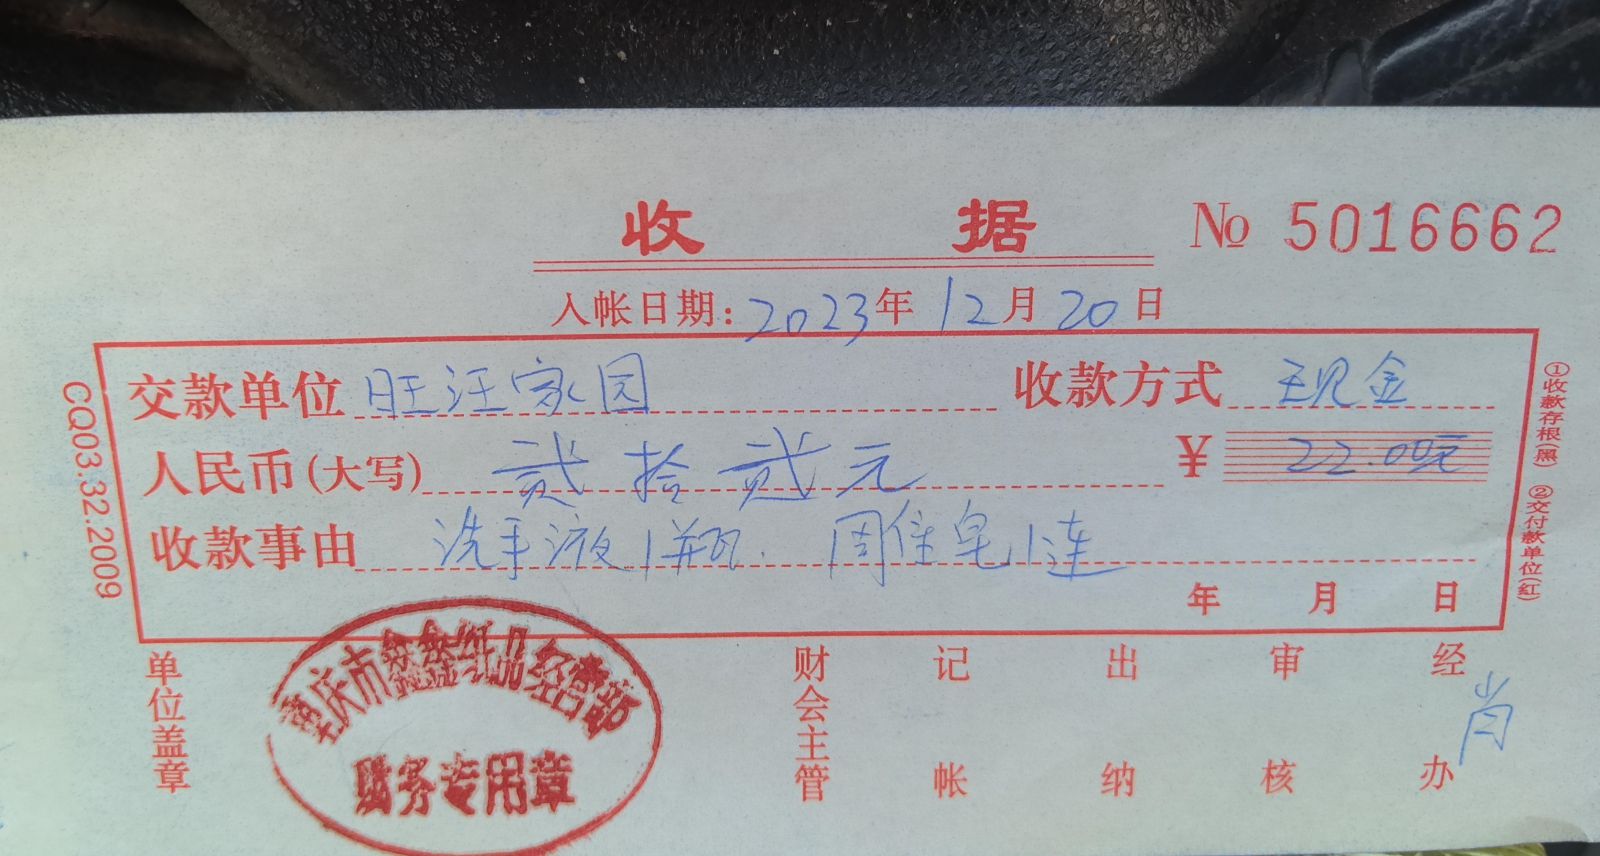 收 据 № 5016662
入帐日期：2023年 12月 20日
交款单位 旺汪家园 收款方式 现金
人民币(大写) 贰拾贰元 ¥ 22.00元
收款事由 洗手液1瓶. 周住皂1连
年 月 日
CQ03.32.2009
①收款存根(黑) ②交付款单位(红)
单位盖章 财会主管 记帐 出纳 审核 经办 肖
重庆市鑫鑫纸品经营部
财务专用章